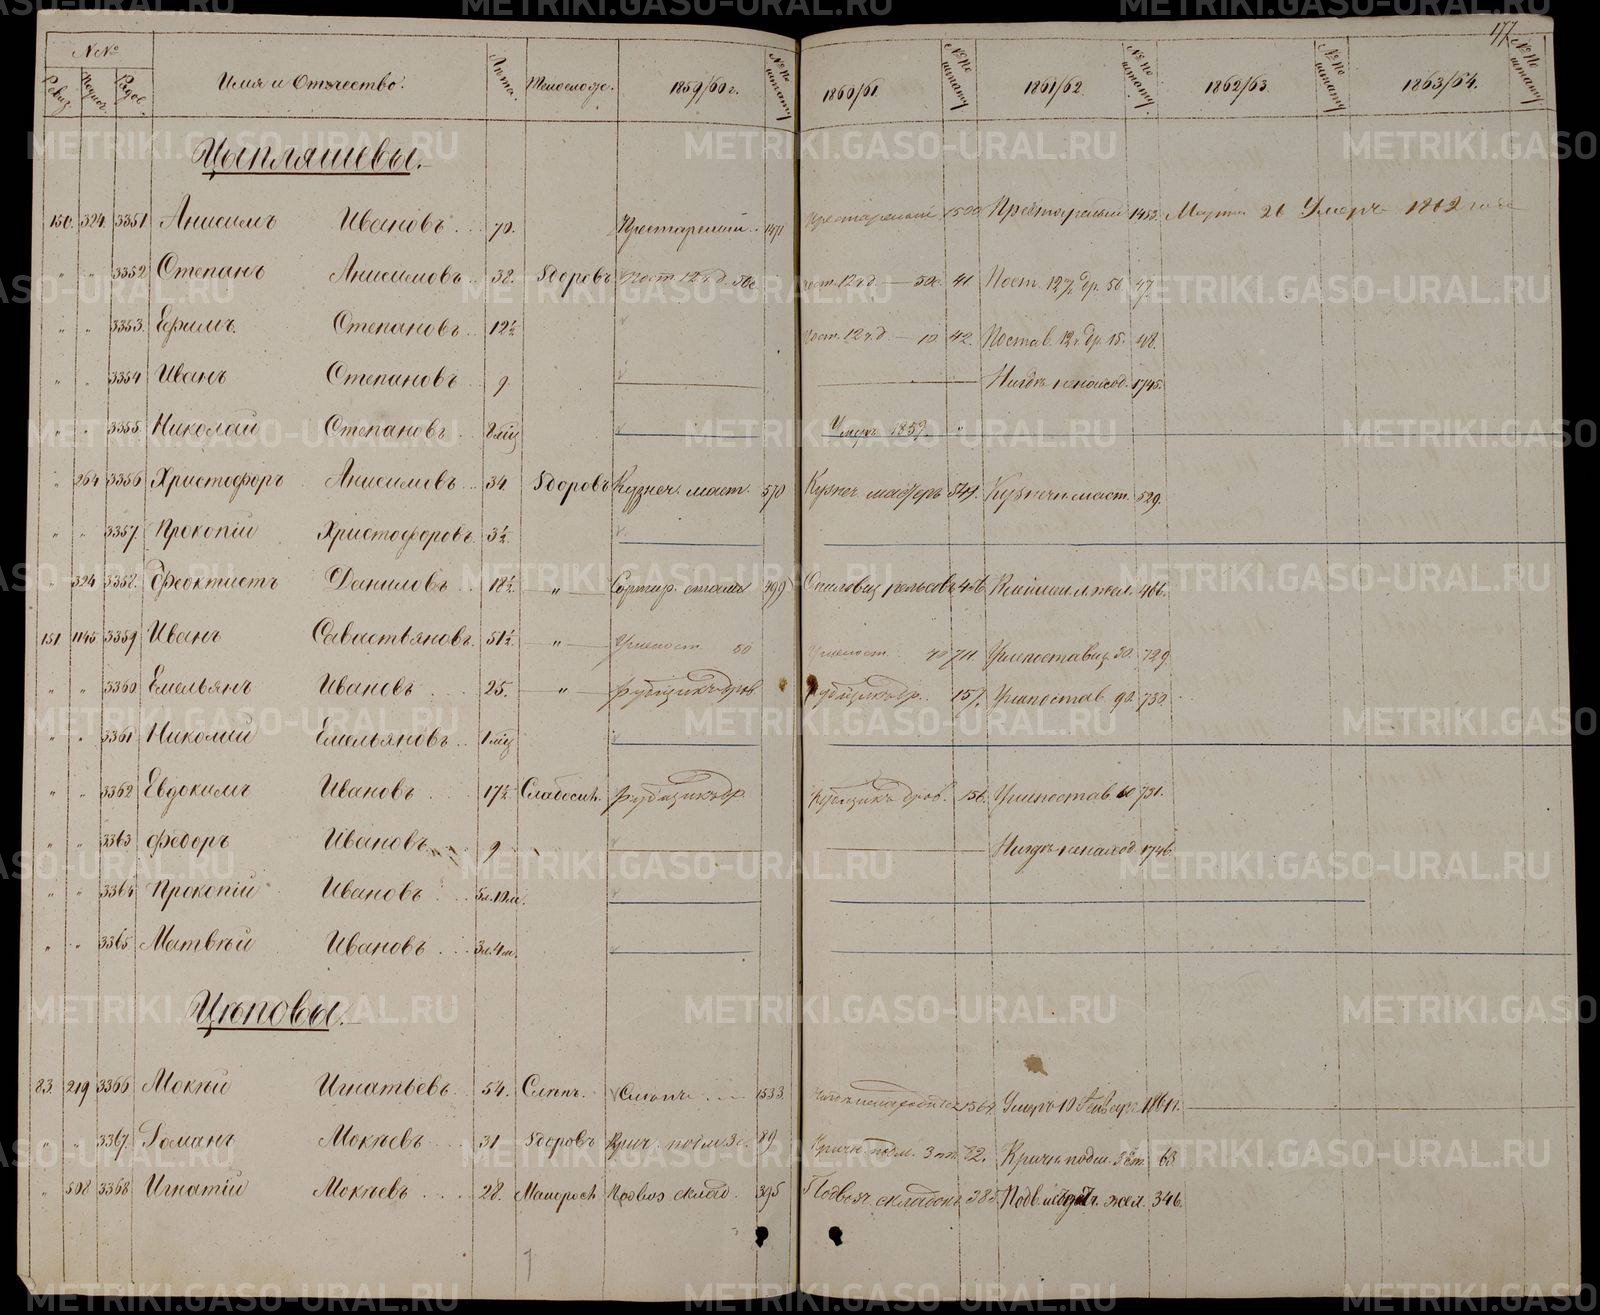 177
№№ Имя и Отчество. Лѣта. Тѣлослож. 1859/60 г. №№ по штату 1860/61. №№ по штату 1861/62 №№ по штату. 1862/63. №№ по штату 1863/64. №№ по штату
Ревиз. Рядов.
Цыпляшевы.
150. 324. 3351 Анисимъ Ивановъ 70. Престарелый 1471 Престарелый 1500 Престарелый 1453. Марта 26 Умеръ 1862 года
" " 3352 Степанъ Анисимовъ 38. Здоровъ Пост. 12 ч. д. 50с. Пост. 12 ч. д. — 50с. 41 Пост. 12 ч. др. 50 47.
" " 3353. Ефимъ Степановъ 12½ Пост. 12 ч. д — 10 42. Постав. 12 ч. др. 15. 48.
" " 3354 Иванъ Степановъ 9 Нигдѣ ненаход. 1745.
" " 3355 Николай Степановъ 2 мѣс. Умеръ 1859.
" 264 3356 Христофоръ Анисимовъ 34 Здоровъ Кузнеч. маст. 570 Кузнеч. мастеръ 544. Кузнечн. маст. 529.
" " 3357 Прокопій Христофоровъ 3½
" 324 3358. Феоктистъ Даниловъ 18½ " Сортир. 499 рельсовъ 466.
151. 1145 3359 Иванъ Савастьяновъ 51½ " Углепост. 50 Углепост. 40 711. Углепоставщ. 50. 729.
" " 3360 Емельянъ Ивановъ 25. " Рубщикъ дров. Рубщикъ др. 157. Углепостав. 90. 730.
" " 3361 Николай Емельяновъ 1 мѣс.
" " 3362 Евдокимъ Ивановъ 17½ Слабосил. Рубщикъ др. Рубщикъ дров. 156. Углепостав. 60 731.
" " 3363 Федоръ Ивановъ 9 Нигдѣ ненаход. 1746.
" " 3364 Прокопій Ивановъ 5 л. 10 м.
" " 3365 Матвѣй Ивановъ 3 л. 4 м.
Цѣповы.
83. 219 3366 Мокѣй Игнатьевъ 54. Слѣпъ. Слѣпъ 1533. Умеръ 10 Генваря 1861 г.
" " 3367 Романъ Мокѣевъ 31 Здоровъ Крич. подм. 3 с. 89 Кричн. подм. 3 ст. 82. Кричн. подм. 3 ст. 63
" 508 3368 Игнатій Мокѣевъ 28. Малоросл. Подвоз. склад. 395 Подвоз. складокъ 385 Подв. жел. 346.
METRIKI.GASO-URAL.RU